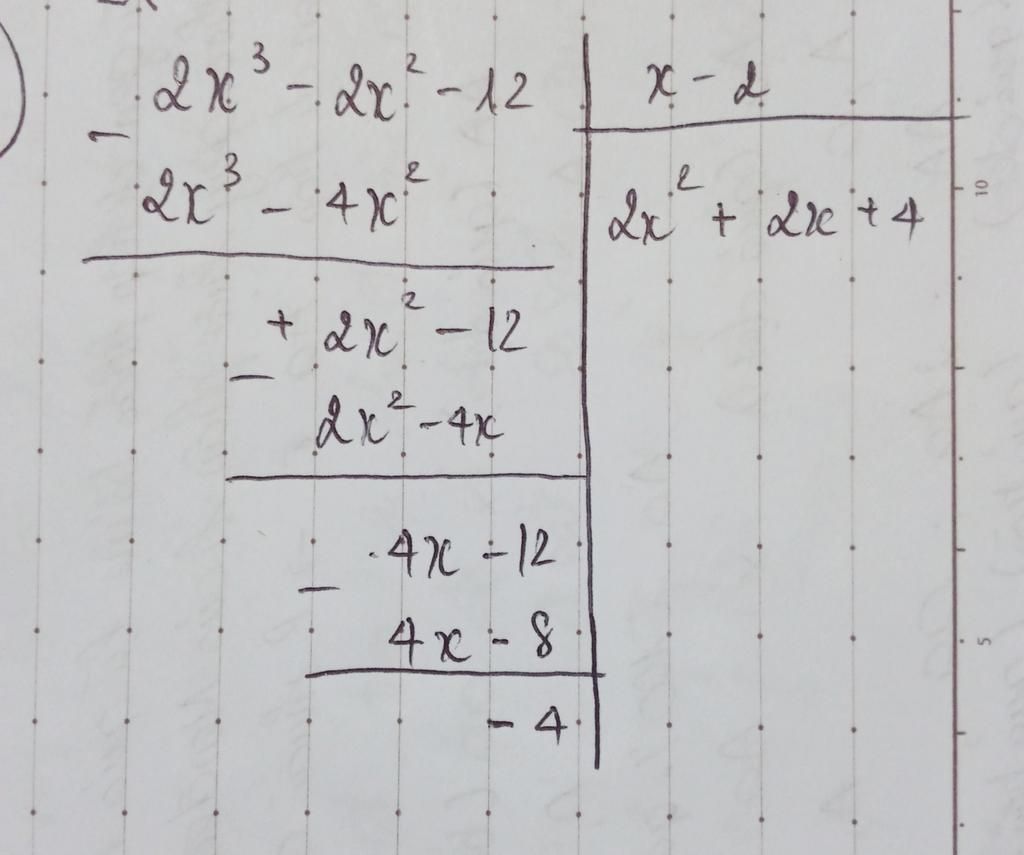 2x³ - 2x² - 12
x - 2
-
2x³ - 4x²
2x² + 2x + 4
+ 2x² - 12
-
2x² - 4x
4x - 12
-
4x - 8
- 4
10
5